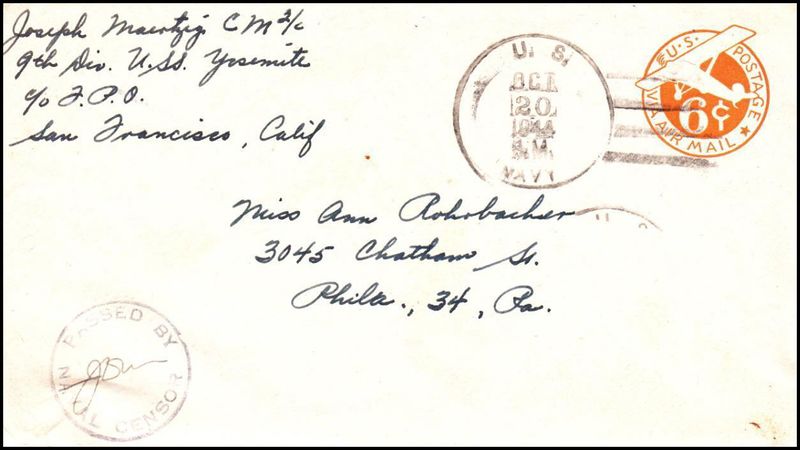 Joseph Maertzig CM 2/c
9th Div. U.SS. Yosemite
c/o F.P.O.
San Francisco, Calif
U. S.
OCT
20
1944
NAVY
U.S. POSTAGE
6¢
VIA AIR MAIL
Miss Ann Rohrbacher
3045 Chatham St.
Phila., 34, Pa.
U S
PASSED BY
NAVAL CENSOR